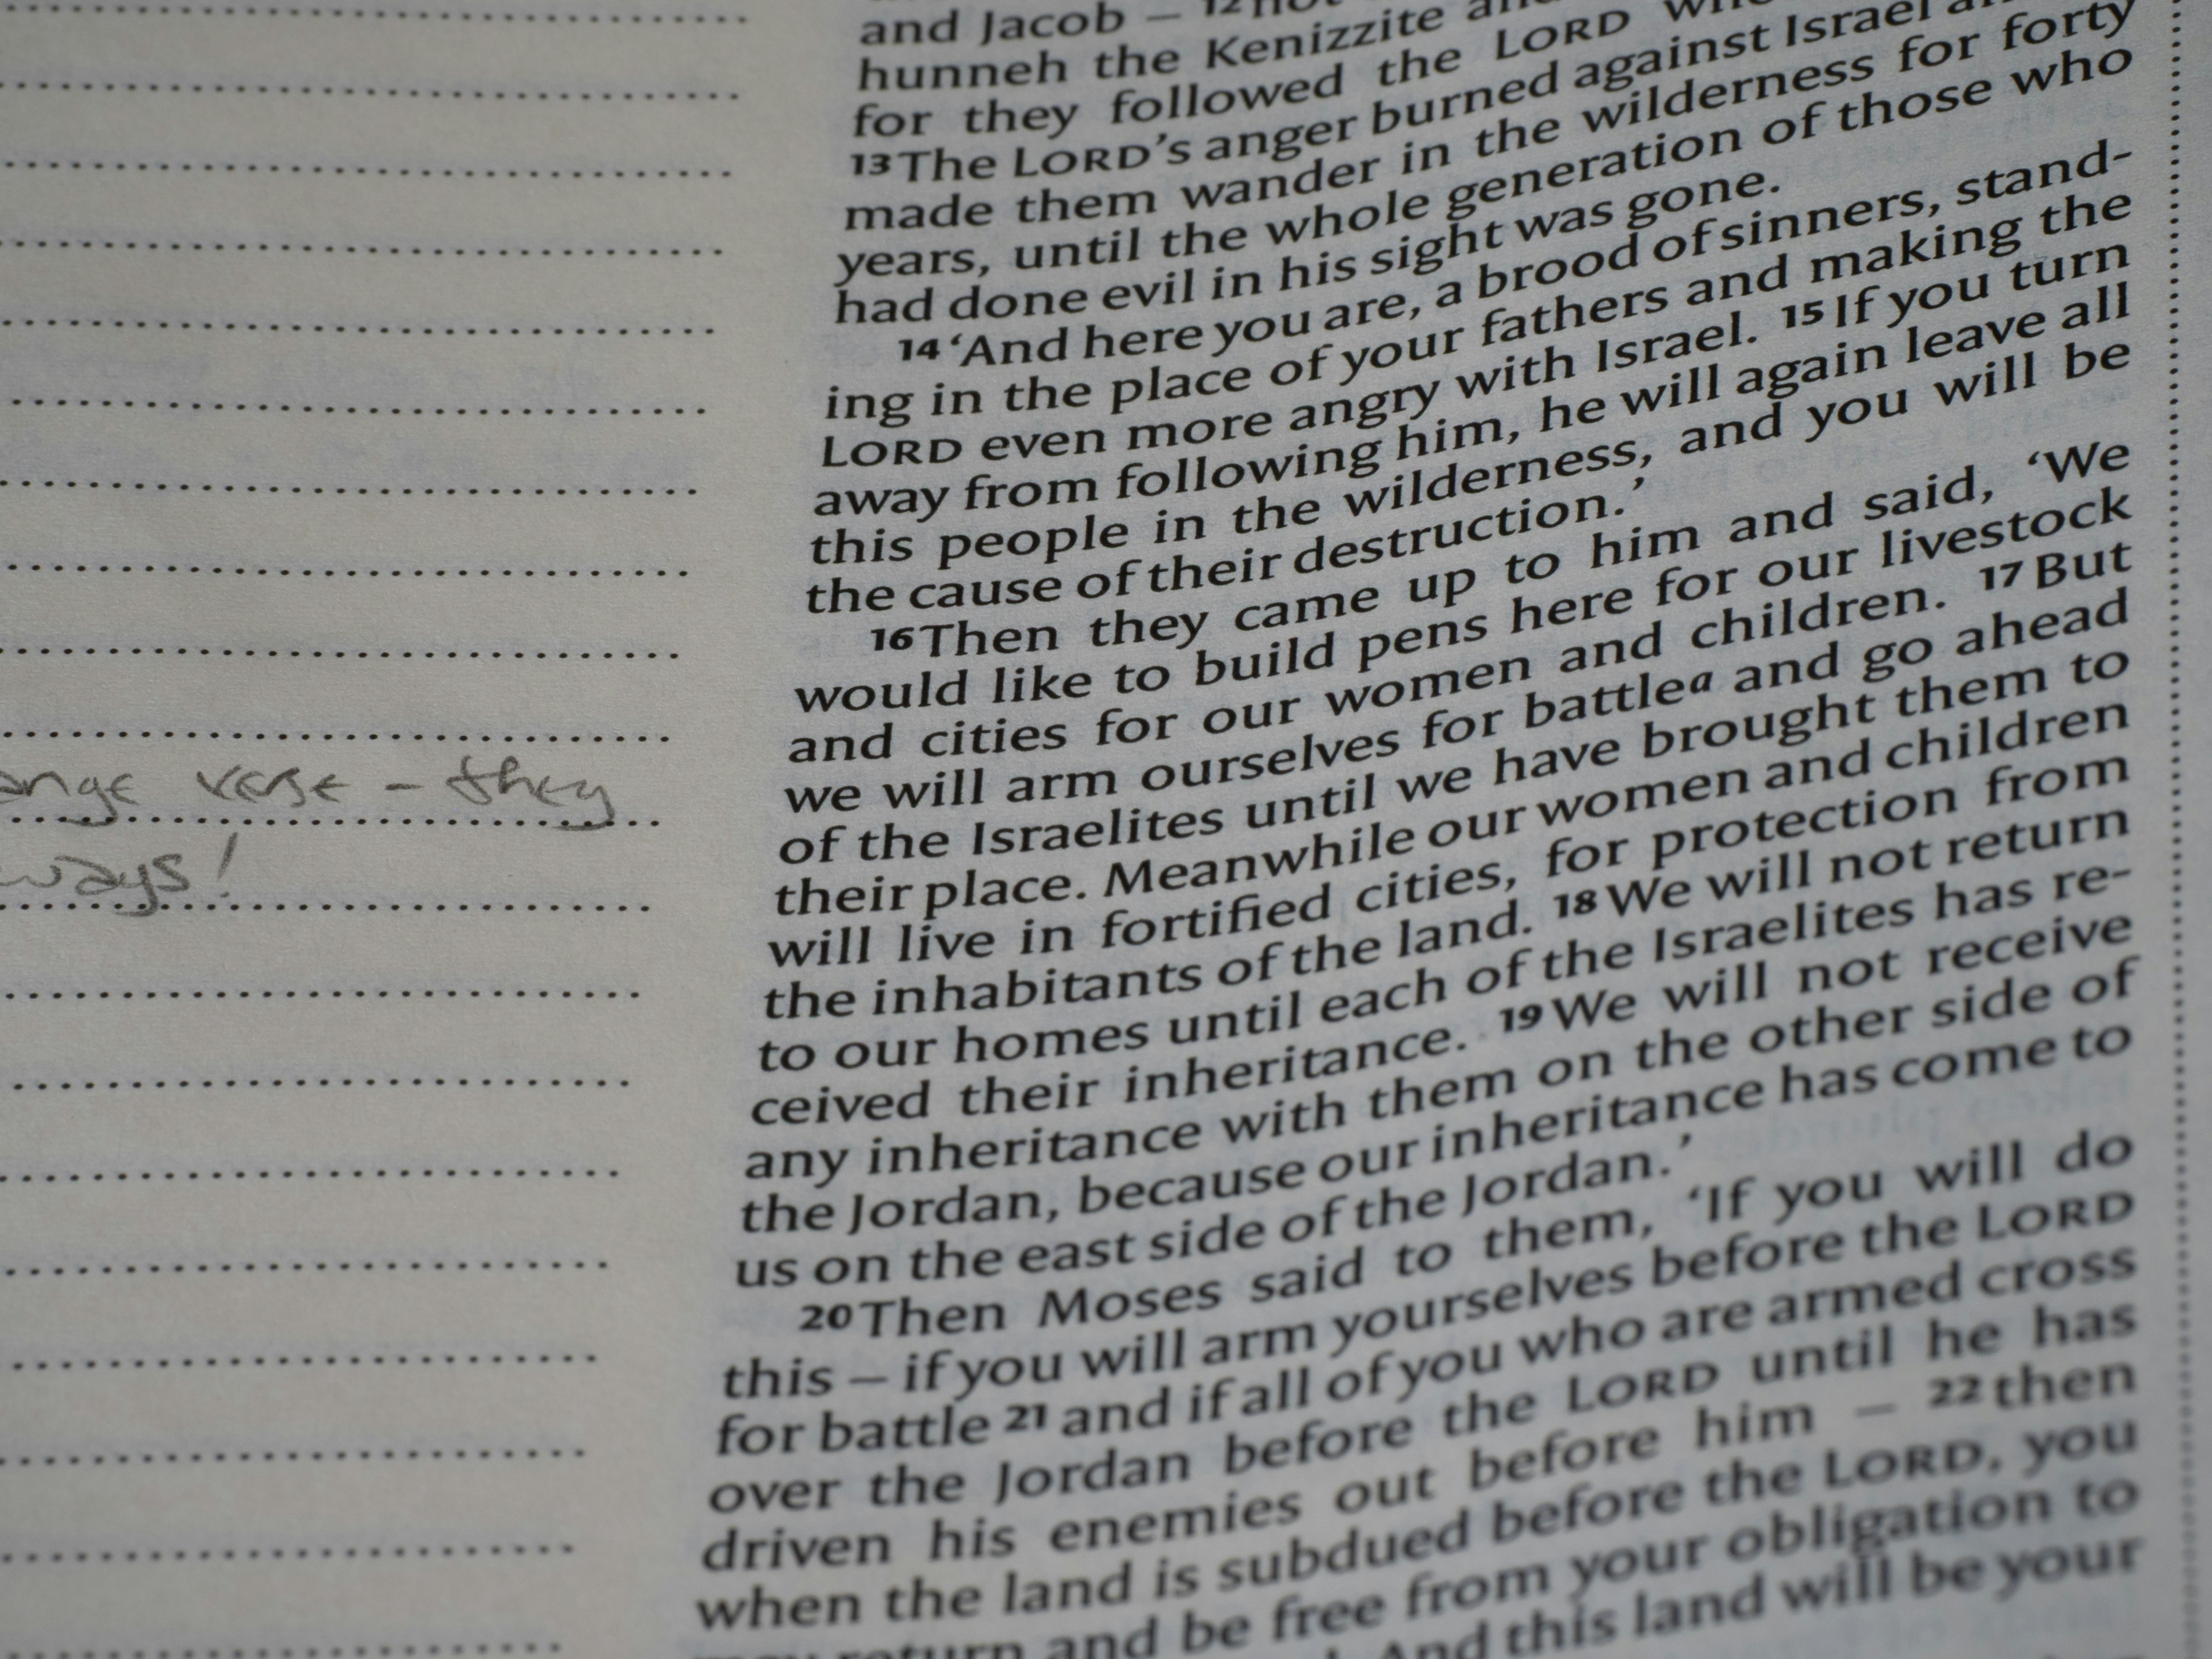 and Jacob – 12 not
hunneh the Kenizzite and
for they followed the LORD
13 The LORD's anger burned against Israel
made them wander in the wilderness for forty
years, until the whole generation of those who
had done evil in his sight was gone.
14 ‘And here you are, a brood of sinners, stand-
ing in the place of your fathers and making the
LORD even more angry with Israel. 15 If you turn
away from following him, he will again leave all
this people in the wilderness, and you will be
the cause of their destruction.’
16 Then they came up to him and said, ‘We
would like to build pens here for our livestock
and cities for our women and children. 17 But
we will arm ourselves for battleᵃ and go ahead
of the Israelites until we have brought them to
their place. Meanwhile our women and children
will live in fortified cities, for protection from
the inhabitants of the land. 18 We will not return
to our homes until each of the Israelites has re-
ceived their inheritance. 19 We will not receive
any inheritance with them on the other side of
the Jordan, because our inheritance has come to
us on the east side of the Jordan.’
20 Then Moses said to them, ‘If you will do
this – if you will arm yourselves before the LORD
for battle 21 and if all of you who are armed cross
over the Jordan before the LORD until he has
driven his enemies out before him – 22 then
when the land is subdued before the LORD, you
may return and be free from your obligation to
And this land will be your
ange verse – they
ways!